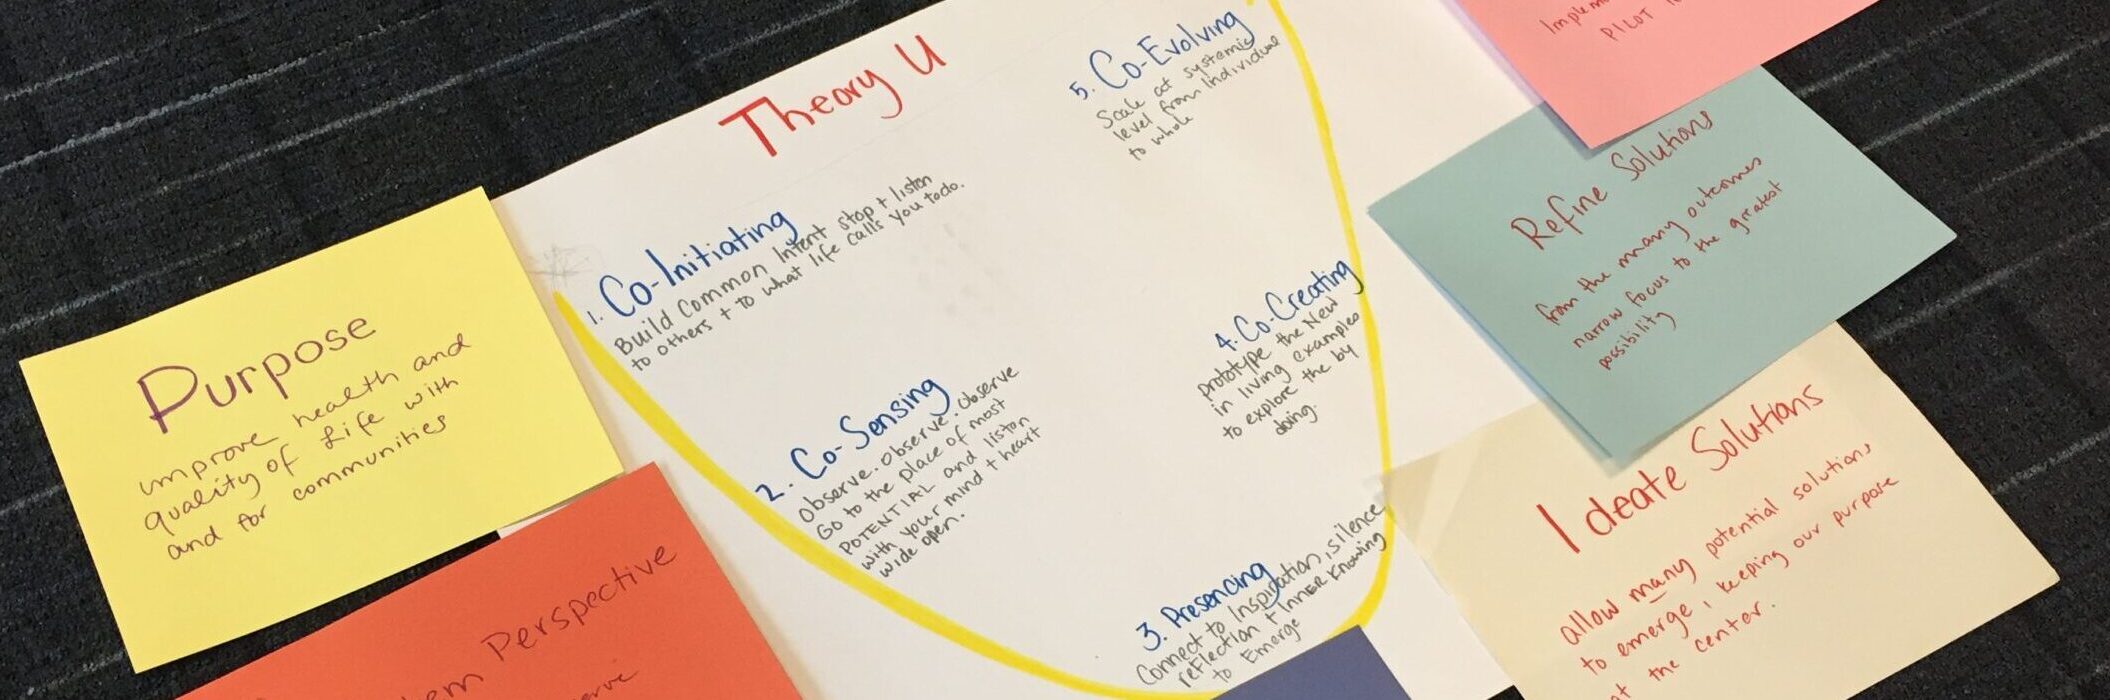 Theory U
1. Co-Initiating
Build Common Intent stop + listen
to others + to what life calls you todo.
2. Co-Sensing
Observe. Observe. Observe
Go to the place of most
POTENTIAL and listen
with your mind + heart
wide open.
3. Presencing
Connect to Inspiration, silence
reflection + Inner Knowing
to Emerge
4. Co-Creating
prototype the New
in living examples
to explore the by
doing.
5. Co-Evolving
Scale at systemic
level from Individual
to whole
Purpose
improve health and
quality of life with
and for communities
Perspective
PILOT
Refine Solutions
from the many outcomes
narrow focus to the greatest
possibility
Ideate Solutions
allow many potential solutions
to emerge, keeping our purpose
at the center.